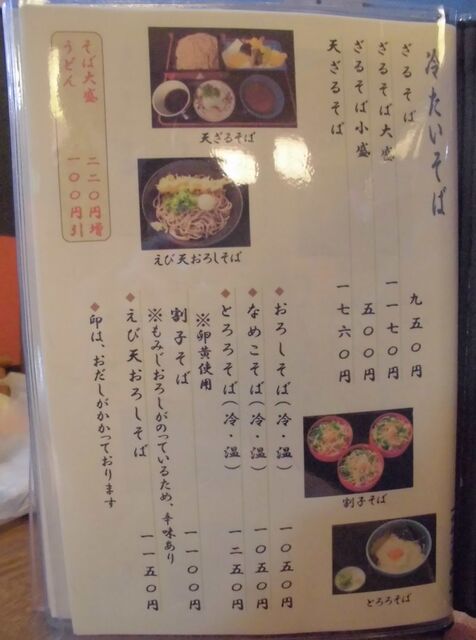 冷たいそば
ざるそば 九五〇円
ざるそば大盛 一一七〇円
ざるそば小盛 五〇〇円
天ざるそば 一七六〇円
◆おろしそば(冷・温) 一〇五〇円
◆なめこそば(冷・温) 一〇五〇円
◆とろろそば(冷・温) 一二五〇円
※卵黄使用
割子そば 一一〇〇円
※もみじおろしがのっているため、辛味あり
◆えび天おろしそば 一一五〇円
◆印は、おだしがかかっております
そば大盛 二二〇円増
うどん 一〇〇円引
天ざるそば
えび天おろしそば
割子そば
とろろそば